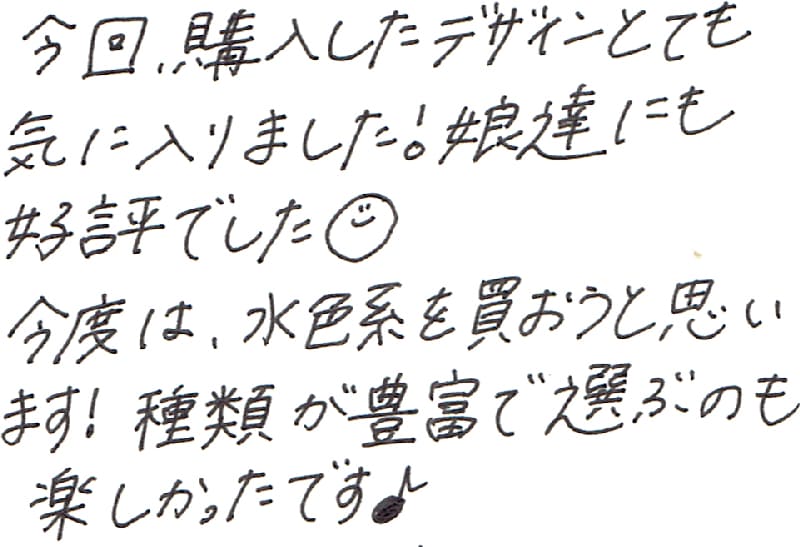 今回、購入したデザインとても
気に入りました!娘達にも
好評でした☺
今度は、水色系を買おうと思い
ます!種類が豊富で選ぶのも
楽しかったです♪